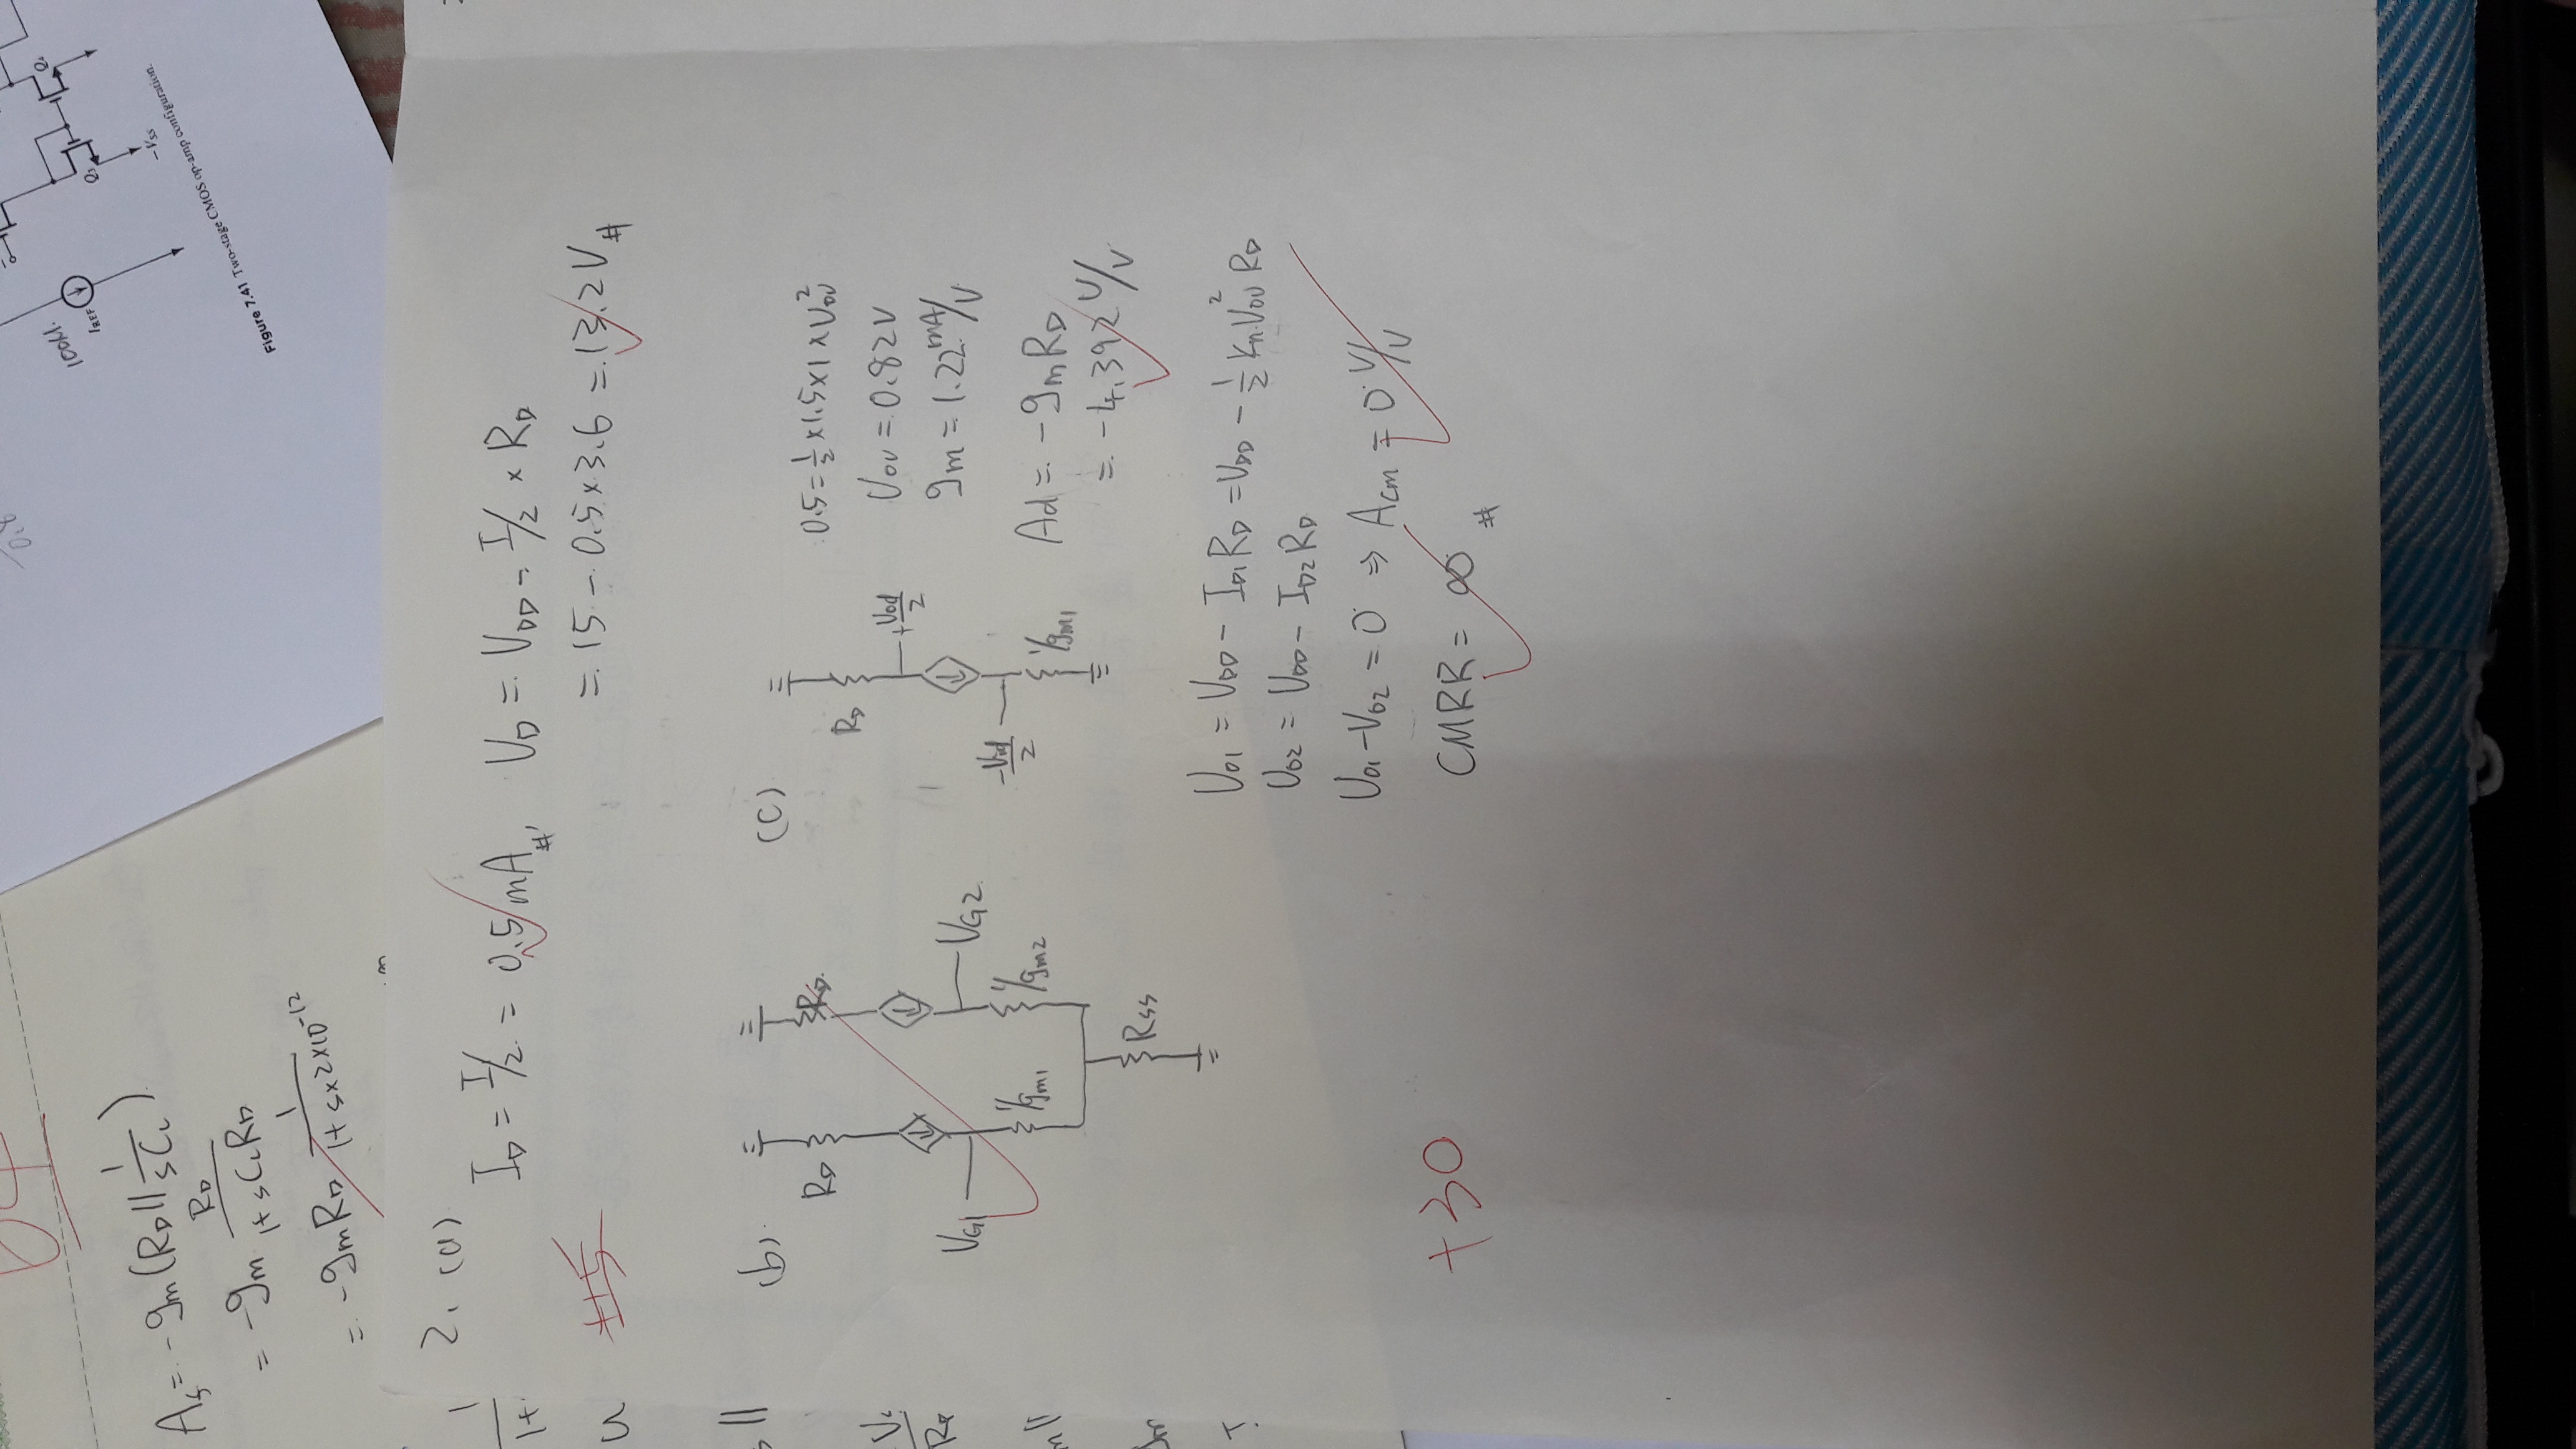 A_s = -g_m (R_D || 1/sC_L)
= -g_m R_D/1+sC_LR_D
= -g_mR_D 1/1+s×2×10^-12
100M.
I_REF
Q_3
Q_4
-V_SS
Figure 7.41 Two-stage CMOS op-amp configuration.
2. (a)
I_D = I/2 = 0.5 mA #, V_D = V_DD - I/2 × R_D
= 15 - 0.5×3.6 = 13.2V #
+15
(b).
R_D
R_D.
V_G1
V_G2
1/g_m1
1/g_m2
R_SS
(c)
R_D
+V_od/2
-V_id/2
1/g_m1
0.5 = 1/2 ×1.5×1×V_OV^2
V_OV = 0.82V
g_m = 1.22 mA/V
Ad = -g_mR_D
= -4.392 V/V
V_O1 = V_DD - I_D1R_D = V_DD - 1/2 K_nV_OV^2 R_D
V_O2 = V_DD - I_D2R_D
V_O1 - V_O2 = 0 ⇒ A_cm = 0 V/V
CMRR = ∞ #
+30